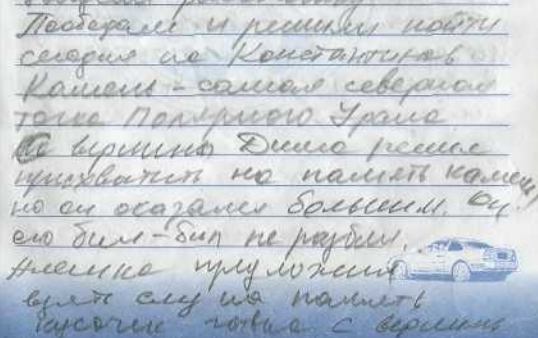 Пообедали и решили пойти
сегодня на Константинов
Камень - самая северная
точка Полярного Урала
С вершины Дима решил
прихватить на память камень,
но он оказался большим. Он
его бил-бил не разбил.
предложил
взять ему на память
кусочек с вершины